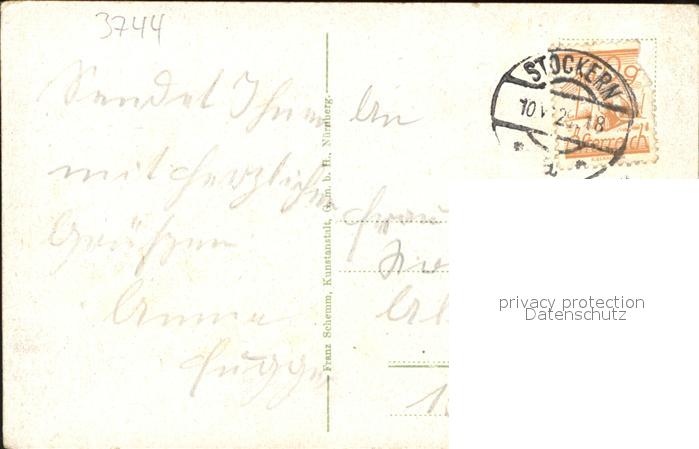 3744
Sendet Ihnen
mit herzlichen
Grüßen
Anna
An
Frau
Franz Schemm, Kunstanstalt, G. m. b. H., Nürnberg.
STOCKERN
10 V 18
Österreich
privacy protection
Datenschutz